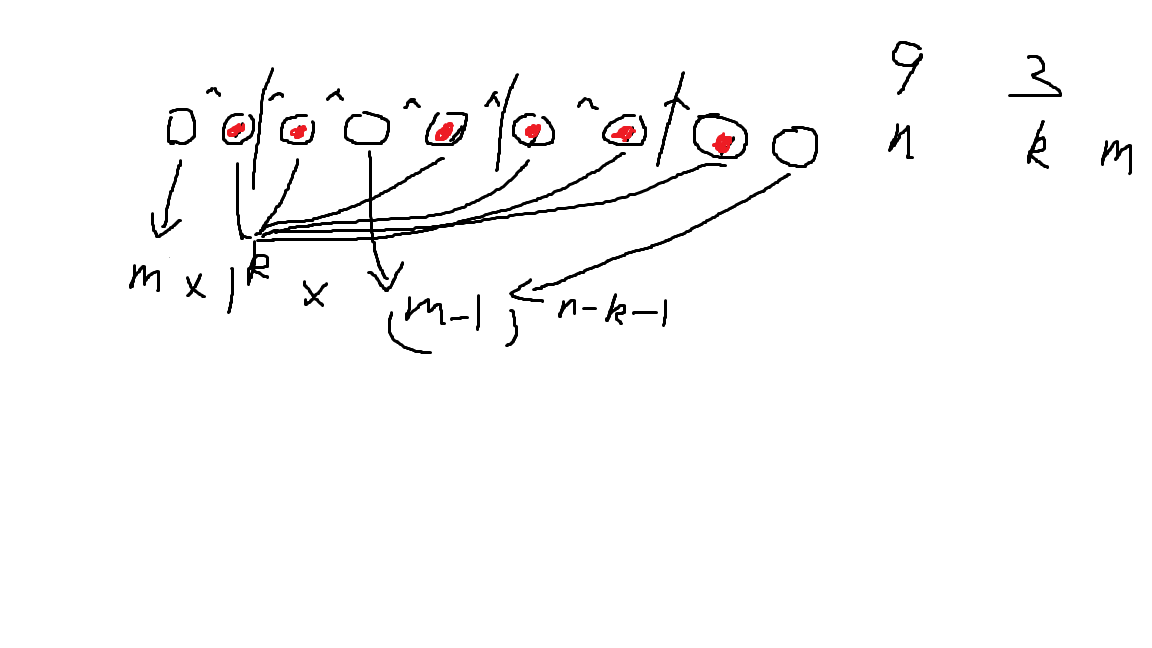 9 3
n k m
m x 1^k x (m-1)^n-k-1